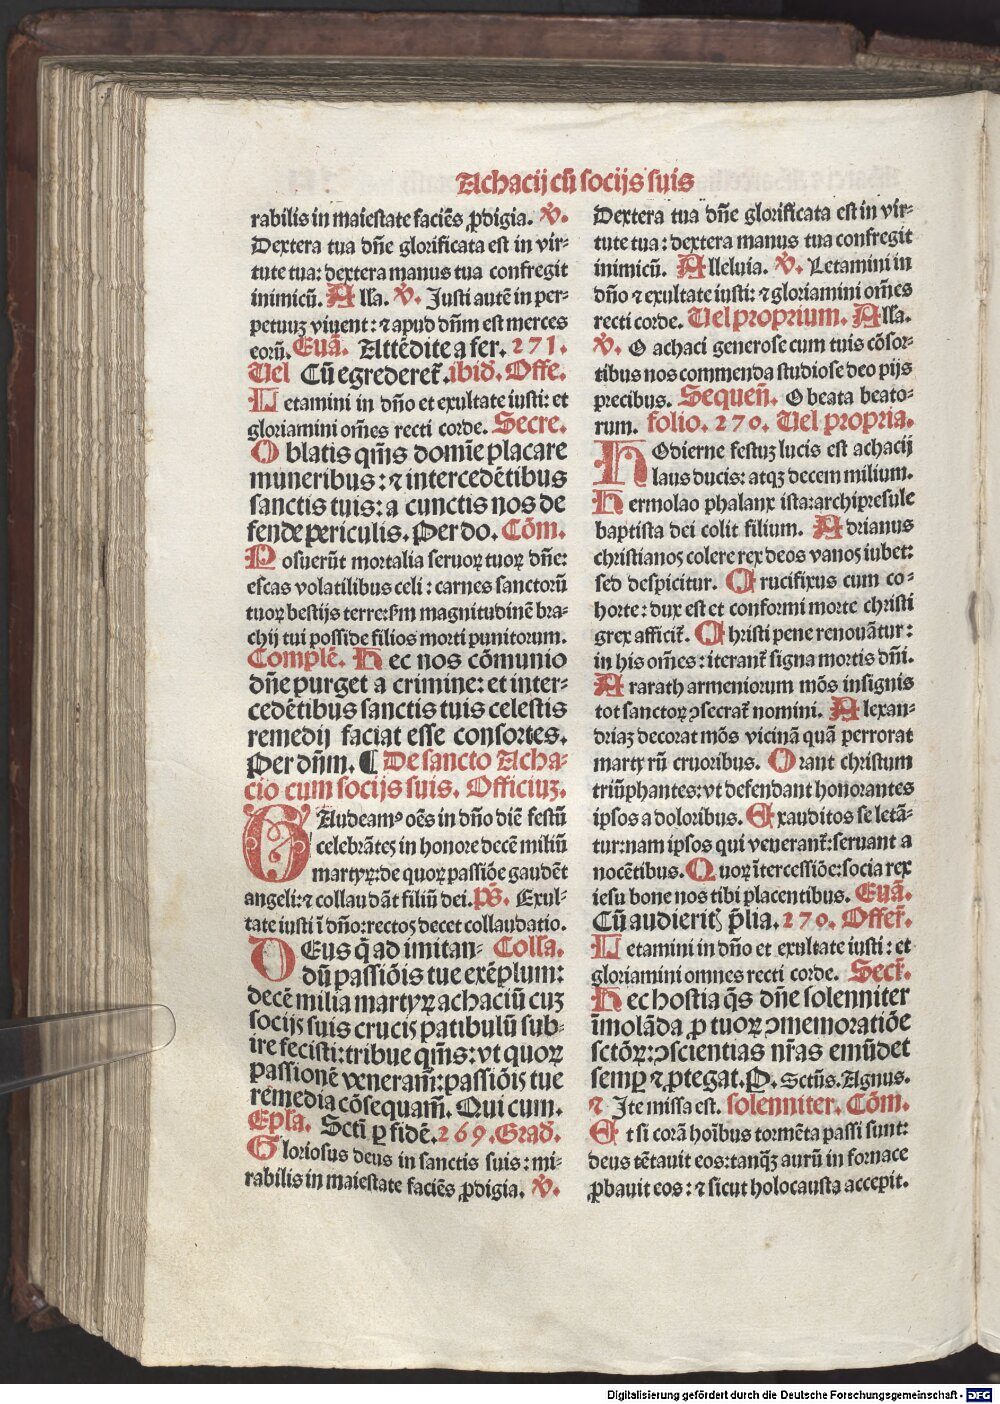 Achacij cũ socijs suis
rabilis in maiestate faciẽs ꝓdigia. ℣.
Dextera tua dñe glorificata est in vir-
tute tua: dextera manus tua confregit
inimicũ. Alľa. ℣. Justi autẽ in per-
petuuʒ viuent: ⁊ apud dñm est merces
eorũ. Euã. Attẽdite a fer. 271.
Uel Cũ egrederet᷑. ibiđ. Offe.
Letamini in dño et exultate iusti: et
gloriamini om̃es recti corde. Secre.
Oblatis q̃ms domĩe placare
muneribus: ⁊ intercedẽtibus
sanctis tuis: a cunctis nos de
fende periculis. Per do. Cõm.
Posuerũt mortalia seruoꝝ tuoꝝ dñe:
escas volatilibus celi: carnes sanctorũ
tuoꝝ bestijs terre: ẜm magnitudinẽ bra-
chij tui posside filios morti punitorum.
Complẽ. Hec nos cõmunio
dñe purget a crimine: et inter-
cedẽtibus sanctis tuis celestis
remedij faciat esse consortes.
Per dñm. ¶ De sancto Acha-
cio cum socijs suis. Officiuʒ.
GAudeamꝰ oẽs in dño diẽ festũ
celebrãtes in honore decẽ miliũ
martyꝝ: de quoꝝ passiõe gaudẽt
angeli: ⁊ collaudãt filiũ dei. p̃s. Exul-
tate iusti ĩ dño: rectos decet collaudatio.
DEus q̃ ad imitan- Colla.
dũ passiõis tue exẽplum:
decẽ milia martyꝝ achaciũ cuʒ
socijs suis crucis patibulũ sub-
ire fecisti: tribue q̃ms: vt quoꝝ
passionẽ veneram᷑: passiõis tue
remedia cõsequam᷑. Qui cum.
Epľa. Scti ꝑ fidẽ. 269. Građ.
Gloriosus deus in sanctis suis: mi-
rabilis in maiestate faciẽs ꝓdigia. ℣.
Dextera tua dñe glorificata est in vir-
tute tua: dextera manus tua confregit
inimicũ. Alleluia. ℣. Letamini in
dño ⁊ exultate iusti: ⁊ gloriamini om̃es
recti corde. Uel proprium. Alľa.
℣. O achaci generose cum tuis cõsor-
tibus nos commenda studiose deo pijs
precibus. Sequeñ. O beata beato-
rum. folio. 270. Uel propria.
HOdierne festuʒ lucis est achacij
laus ducis: atqʒ decem milium.
Hermolao phalanx ista: archipresule
baptista dei colit filium. Adrianus
christianos colere rex deos vanos iubet:
sed despicitur. Crucifixus cum co-
horte: dux est et conformi morte christi
grex afficit᷑. Christi pene renouãtur:
in his om̃es: iterant᷑ signa mortis dñi.
Ararath armeniorum mõs insignis
tot sanctoꝝ ↄsecrat᷑ nomini. Alexan-
driaʒ decorat mõs vicinã quã perrorat
martyrũ cruoribus. Orant christum
triũphantes: vt defendant honorantes
ipsos a doloribus. Exauditos se letã-
tur: nam ipsos qui venerant᷑: seruant a
nocẽtibus. Quoꝝ ĩtercessiõe: socia rex
iesu bone nos tibi placentibus. Euã.
Cũ audieritꝭ p̃lia. 270. Offer̃.
Letamini in dño et exultate iusti: et
gloriamini omnes recti corde. Secr̃.
Hec hostia q̃s dñe solenniter
ĩmolãda ꝓ tuoꝝ ↄmemoratiõe
sctõꝝ: ↄscientias nr̃as emũdet
semꝑ ⁊ ꝓtegat. P. Sctũs. Agnus.
⁊ Ite missa est. solenniter. Cõm.
Et si corã hoĩbus tormẽta passi sunt:
deus tẽtauit eos: tanqʒ̃ aurũ in fornace
ꝓbauit eos: ⁊ sicut holocausta accepit.
Digitalisierung gefördert durch die Deutsche Forschungsgemeinschaft - DFG